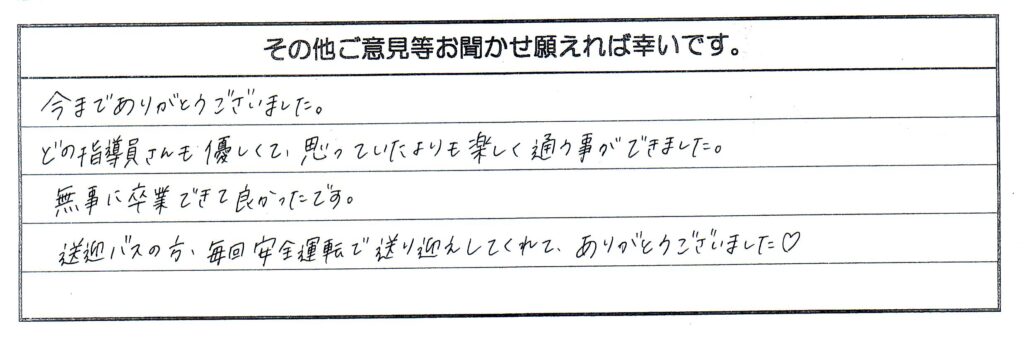 その他ご意見等お聞かせ願えれば幸いです。
今までありがとうございました。
どの指導員さんも優しくて、思っていたよりも楽しく通う事ができました。
無事に卒業できて良かったです。
送迎バスの方、毎回安全運転で送り迎えしてくれて、ありがとうございました♡